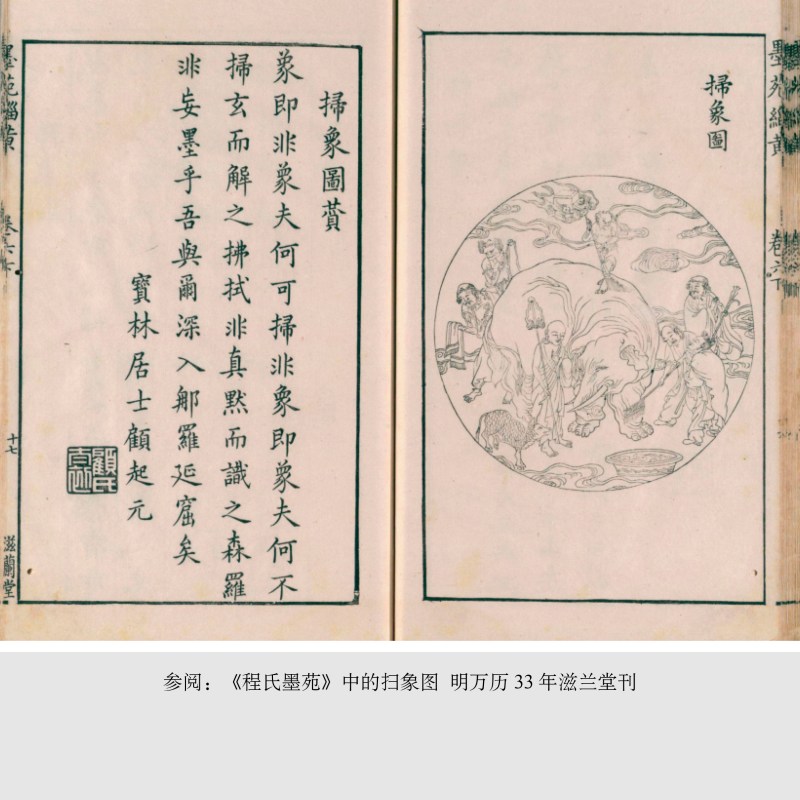 掃象圖
掃象圖贊
象即非象夫何可掃非象即象夫何不
掃玄而解之拂拭非真默而識之森羅
非妄墨乎吾與爾深入那羅延窟矣
寶林居士顧起元
墨苑緇黄
卷六下
十七
滋蘭堂
墨苑緇黄
卷六下
参阅：《程氏墨苑》中的扫象图 明万历 33 年滋兰堂刊